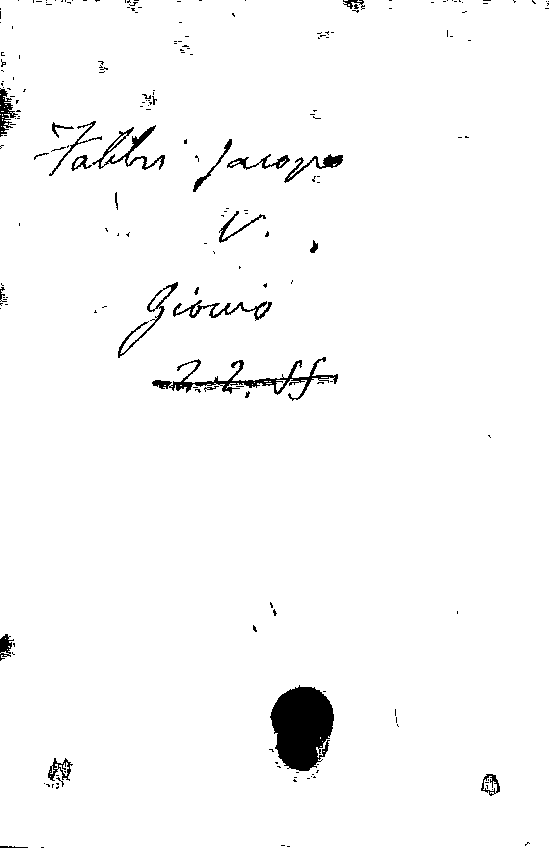 Fabbri Jacopo
V.
Giovio
2.2. ff